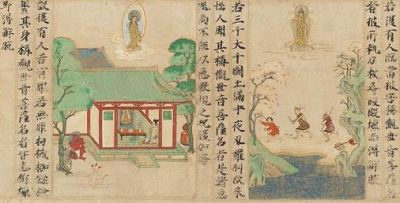 若復有人臨當被害稱觀世音菩薩名
者彼所執刀杖尋段段壞而得解脫
若三千大千國土滿中夜叉羅剎欲來
惱人聞其稱觀世音菩薩名者是諸惡
鬼尚不能以惡眼視之況復加害
設復有人若有罪若無罪杻械枷鎖檢
繫其身稱觀世音菩薩名者皆悉斷壞
即得解脫